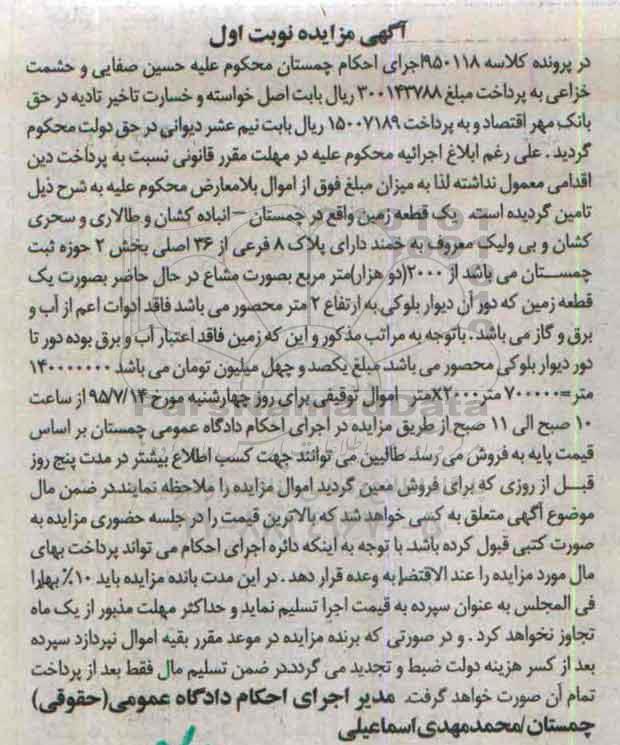 آگهی مزایده نوبت اول
در پرونده کلاسه ۹۵۰۱۱۸اجرای احکام چمستان محکوم علیه حسین صفایی و حشمت
خزاعی به پرداخت مبلغ ۳۰۰۱۴۳۷۸۸ ریال بابت اصل خواسته و خسارت تاخیر تادیه در حق
بانک مهر اقتصاد و به پرداخت ۱۵۰۰۷۱۸۹ ریال بابت نیم عشر دیوانی در حق دولت محکوم
گردید . علی رغم ابلاغ اجرائیه محکوم علیه در مهلت مقرر قانونی نسبت به پرداخت دین
اقدامی معمول نداشته لذا به میزان مبلغ فوق از اموال بلامعارض محکوم علیه به شرح ذیل
تامین گردیده است. یک قطعه زمین واقع در چمستان – انباده کشان و طالاری و سحری
کشان و بی ولیک معروف به خمند دارای پلاک ۸ فرعی از ۳۶ اصلی بخش ۲ حوزه ثبت
چمستان می باشد از ۲۰۰۰(دو هزار)متر مربع بصورت مشاع در حال حاضر بصورت یک
قطعه زمین که دور آن دیوار بلوکی به ارتفاع ۲ متر محصور می باشد فاقد ادوات اعم از آب و
برق و گاز می باشد . باتوجه به مراتب مذکور و این که زمین فاقد اعتبار آب و برق بوده دور تا
دور دیوار بلوکی محصور می باشد. مبلغ یکصد و چهل میلیون تومان می باشد ۱۴۰۰۰۰۰۰۰
متر=۷۰۰۰۰۰ متر۲۰۰۰Xمتر اموال توقیفی برای روز چهارشنبه مورخ ۹۵/۷/۱۴ از ساعت
۱۰ صبح الی ۱۱ صبح از طریق مزایده در اجرای احکام دادگاه عمومی چمستان بر اساس
قیمت پایه به فروش می رسد. طالبین می توانند جهت کسب اطلاع بیشتر در مدت پنج روز
قبل از روزی که برای فروش معین گردید اموال مزایده را ملاحظه نمایند.در ضمن مال
موضوع آگهی متعلق به کسی خواهد شد که بالاترین قیمت را در جلسه حضوری مزایده به
صورت کتبی قبول کرده باشد. با توجه به اینکه دائره اجرای احکام می تواند پرداخت بهای
مال مورد مزایده را عند الاقتضا به وعده قرار دهد . در این مدت بانده مزایده باید ۱۰٪ بها را
فی المجلس به عنوان سپرده به قیمت اجرا تسلیم نماید و حداکثر مهلت مذبور از یک ماه
تجاوز نخواهد کرد . و در صورتی که برنده مزایده در موعد مقرر بقیه اموال نپردازد سپرده
بعد از کسر هزینه دولت ضبط و تجدید می گردد.در ضمن تسلیم مال فقط بعد از پرداخت
تمام آن صورت خواهد گرفت. مدیر اجرای احکام دادگاه عمومی(حقوقی)
چمستان/محمدمهدی اسماعیلی
ParsNamadData